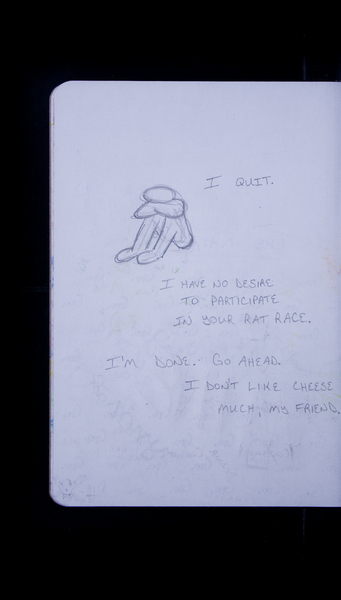 I QUIT.
I HAVE NO DESIRE
TO PARTICIPATE
IN YOUR RAT RACE.
I'M DONE. GO AHEAD.
I DON'T LIKE CHEESE
MUCH, MY FRIEND.